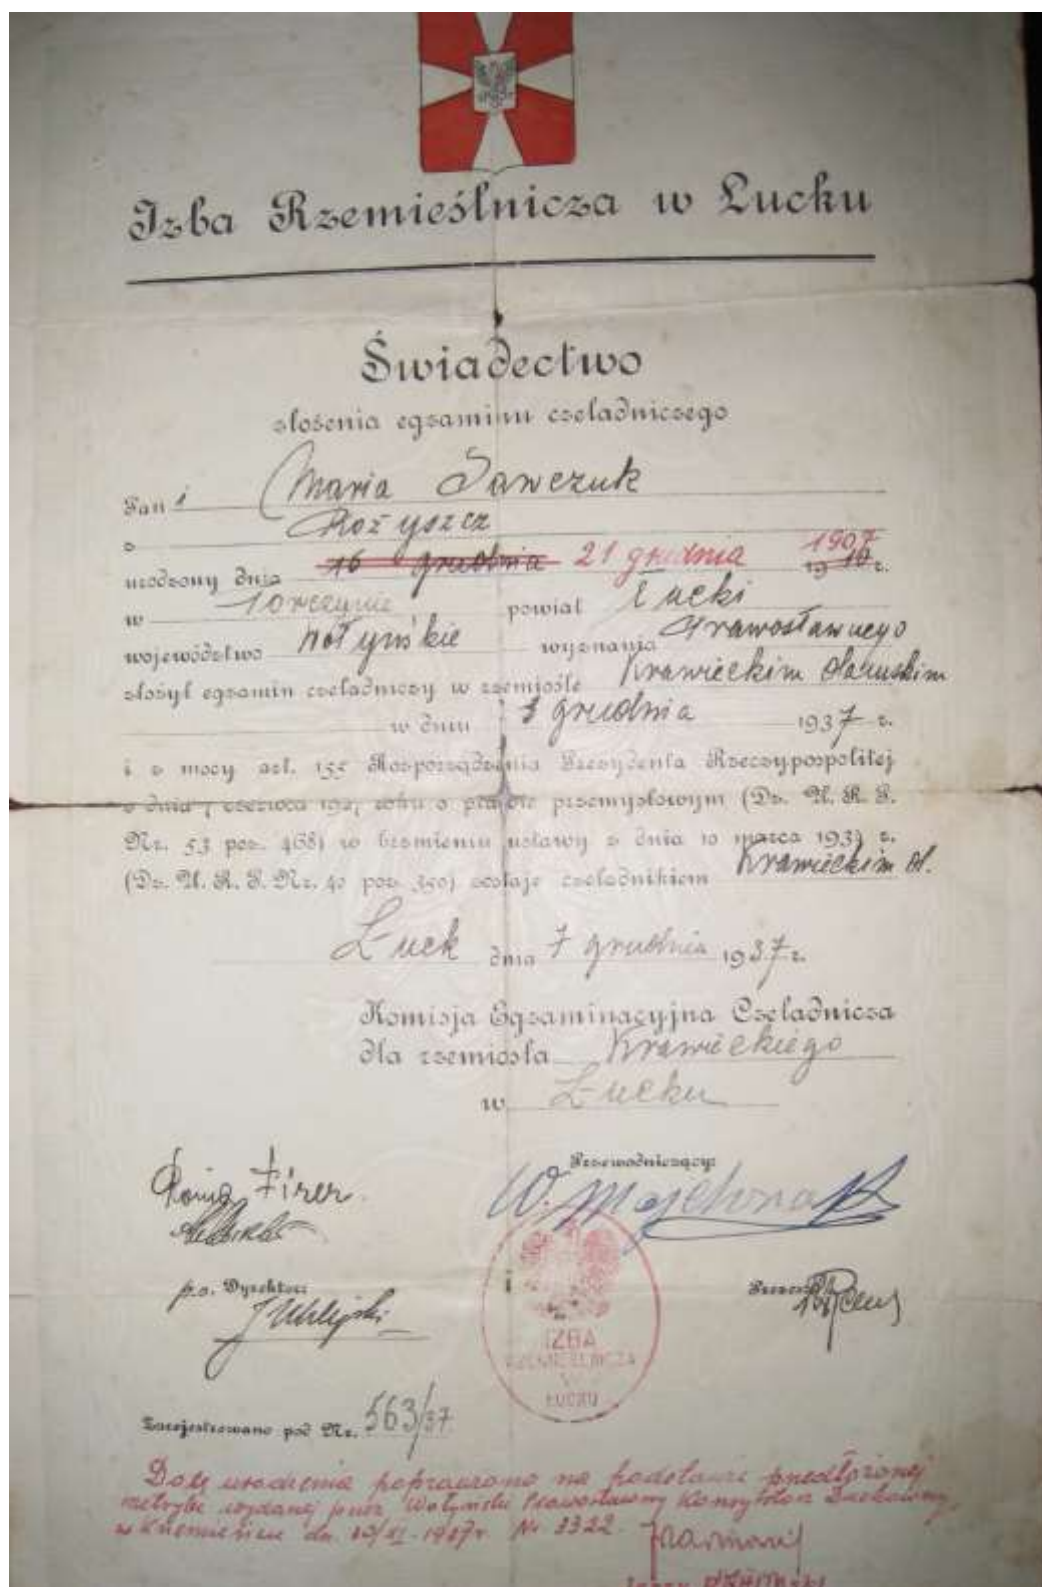 Izba Rzemieślnicza w Łucku
Świadectwo
złożenia egzaminu czeladniczego
Pan i Maria Sawczuk
z Rożyszcz
urodzony dnia 16 grudnia 21 grudnia 1907 1910 r.
w Torczynie powiat Łucki
województwo Wołyńskie wyznania Prawosławnego
złożył egzamin czeladniczy w rzemiośle Krawieckim damskim
w dniu grudnia 1937 r.
i z mocy art. 155 Rozporządzenia Prezydenta Rzeczypospolitej
z dnia 7 czerwca 1927 roku o prawie przemysłowym (Dz. U. R. P.
Nr. 53 poz. 468) w brzmieniu ustawy z dnia 10 marca 1934 r.
(Dz. U. R. P. Nr. 40 poz. 350) zostaje czeladnikiem Krawieckim d.
Łuck dnia 7 grudnia 1937 r.
Komisja Egzaminacyjna Czeladnicza
dla rzemiosła Krawieckiego
w Łucku
Przewodniczący:
Firer
p.o. Dyrektor:
Prezes
IZBA
RZEMIEŚLNICZA
W
ŁUCKU
Zarejestrowano pod Nr. 563/37
Datę urodzenia poprawiono na podstawie przedłożonej
metryki wydanej przez Wołyński Prawosławny Konsystorz Duchowny
w Krzemieńcu dn. 20/XI-1937r. Nr 3322.